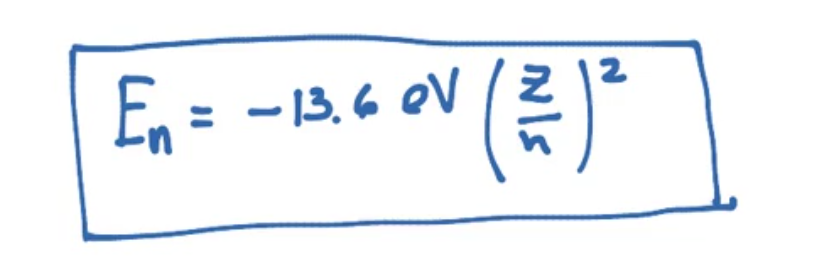 Eₙ = -13.6 eV (Z/n)²